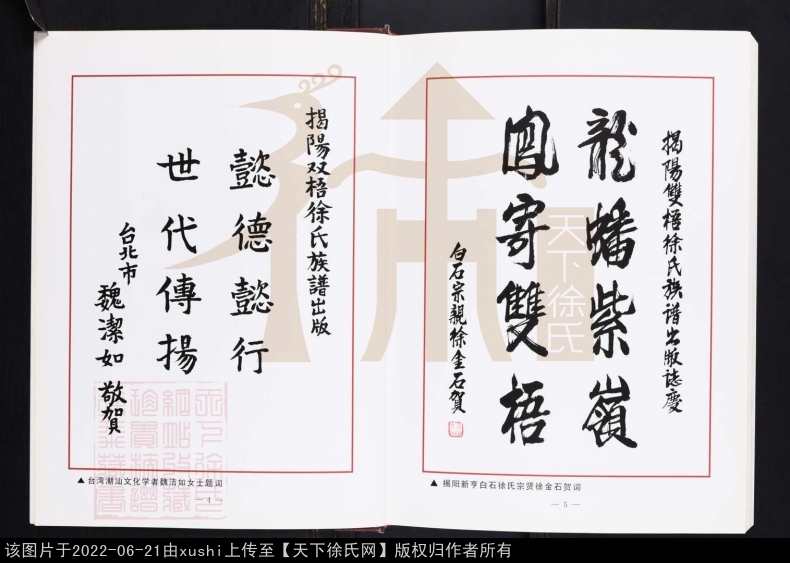 揭陽雙梧徐氏族譜出版誌慶
龍蟠紫嶺
鳳寄雙梧
白石宗親徐金石賀
▲ 揭阳新亨白石徐氏宗贤徐金石贺词
— 5 —
揭陽双梧徐氏族譜出版
懿德懿行
世代傳揚
台北市
魏潔如 敬賀
▲ 台湾潮汕文化学者魏洁如女士题词
— 4 —
天下徐氏
该图片于2022-06-21由xushi上传至【天下徐氏网】版权归作者所有